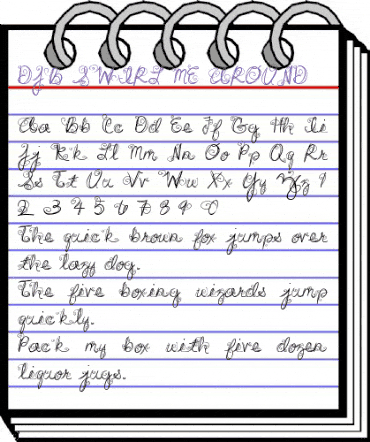 DJB SWIRL ME AROUND
Aa Bb Cc Dd Ee Ff Gg Hh Ii
Jj Kk Ll Mm Nn Oo Pp Qq Rr
Ss Tt Uu Vv Ww Xx Yy Zz 1
2 3 4 5 6 7 8 9 0
The quick brown fox jumps over
the lazy dog.
The five boxing wizards jump
quickly.
Pack my box with five dozen
liquor jugs.